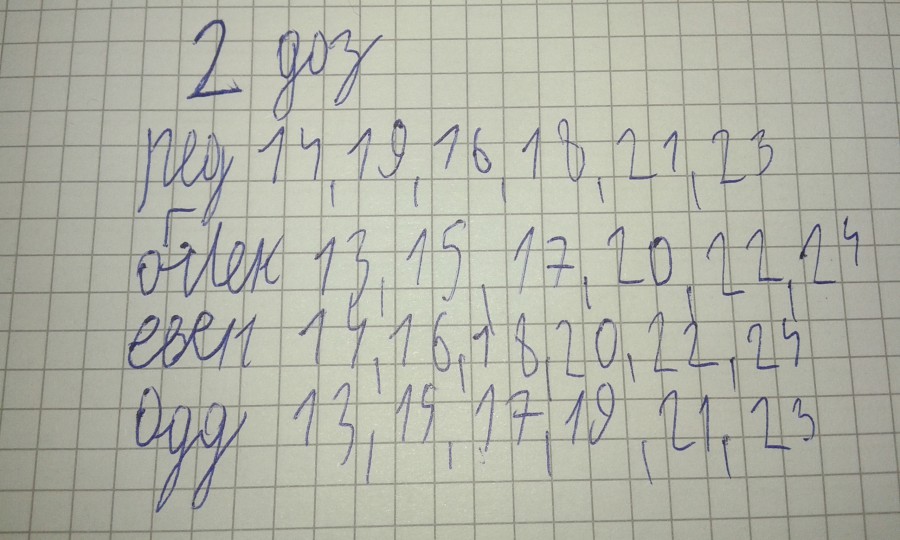 2 доз
ред 14, 19, 16, 18, 21, 23
блек 13, 15, 17, 20, 22, 24
евен 14, 16, 18, 20, 22, 24
одд 13, 15, 17, 19, 21, 23